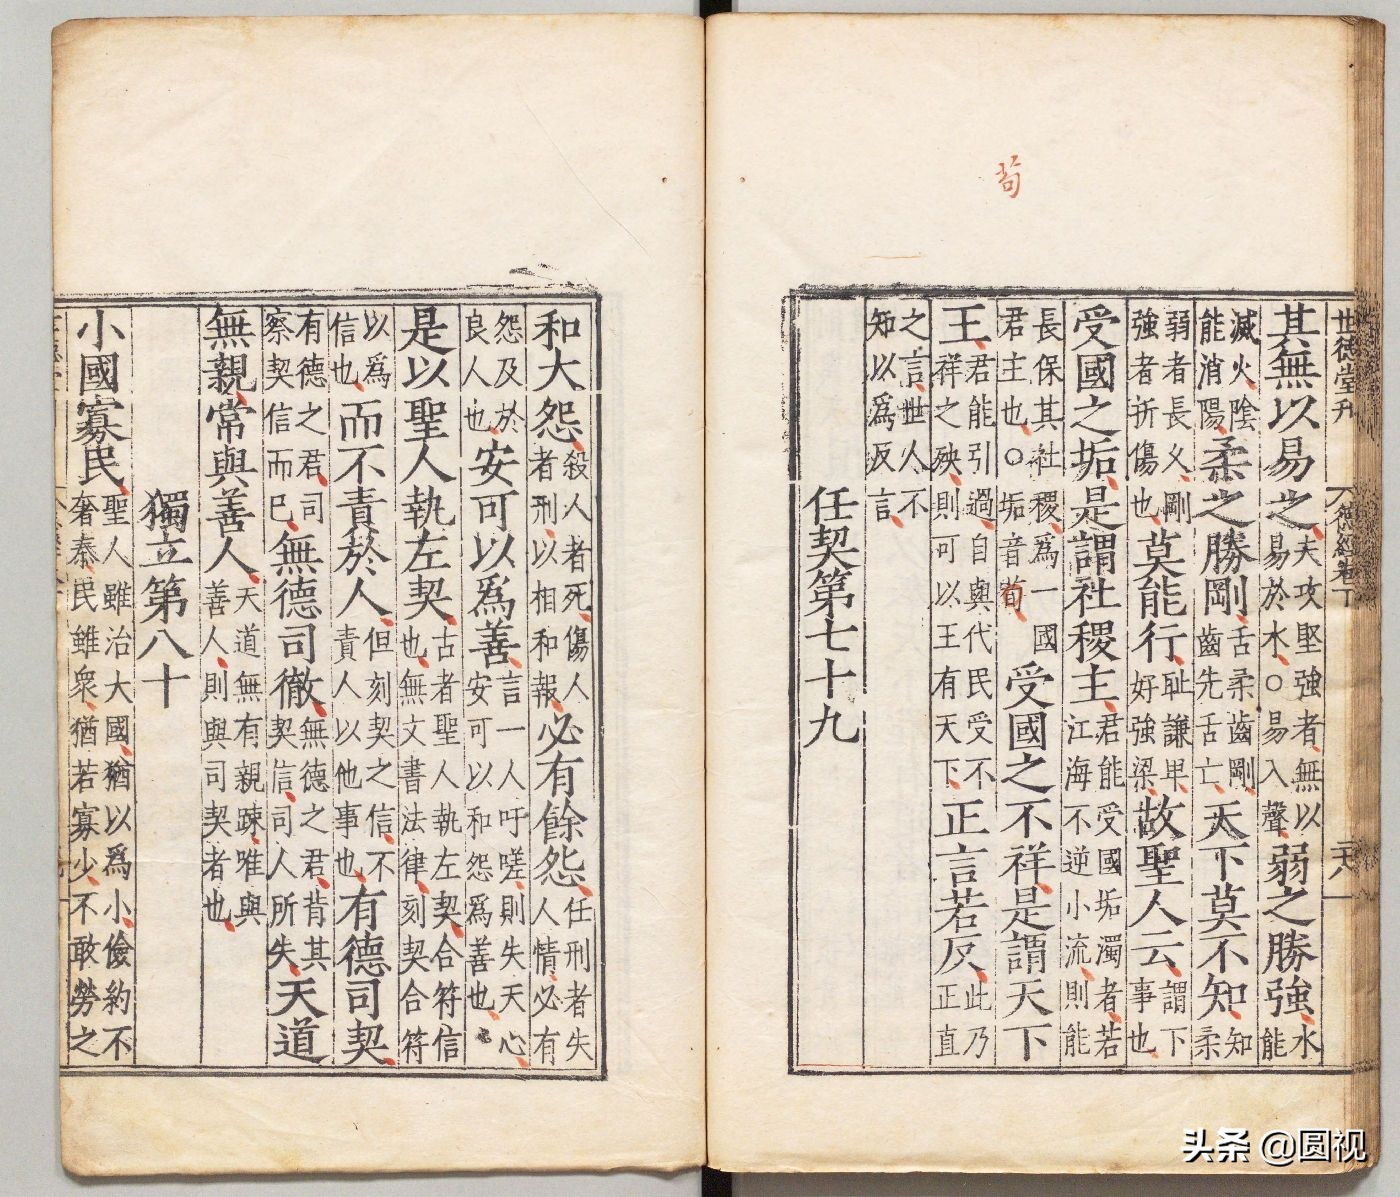 世德堂刊
德經卷下
其無以易之夫攻堅強者無以易於水○易入聲弱之勝強水能
滅火陰能消陽柔之勝剛舌柔齒剛齒先舌亡天下莫不知知柔
弱者長久剛強者折傷也莫能行耻謙卑好強梁故聖人云謂下事也
受國之垢是謂社稷主君能受國垢濁者若江海不逆小流則能
苟
長保其社稷爲一國君主也○垢音荀受國之不祥是謂天下
王君能引過自與代民受不祥之殃則可以王有天下正言若反此乃正直
之言世人不知以爲反言
任契第七十九
和大怨殺人者死傷人者刑以相和報必有餘怨任刑者失人情必有
怨及於良人也安可以爲善言一人吁嗟則失天心安可以和怨爲善也
是以聖人執左契古者聖人執左契合符信也無文書法律刻契合符
以爲信也而不責於人但刻契之信不責人以他事也有德司契
有德之君司察契信而已無德司徹無德之君背其契信司人所失天道
無親常與善人天道無有親踈唯與善人則與司契者也
獨立第八十
小國寡民聖人雖治大國猶以爲小儉約不奢泰民雖衆猶若寡少不敢勞之
头条 @圆视